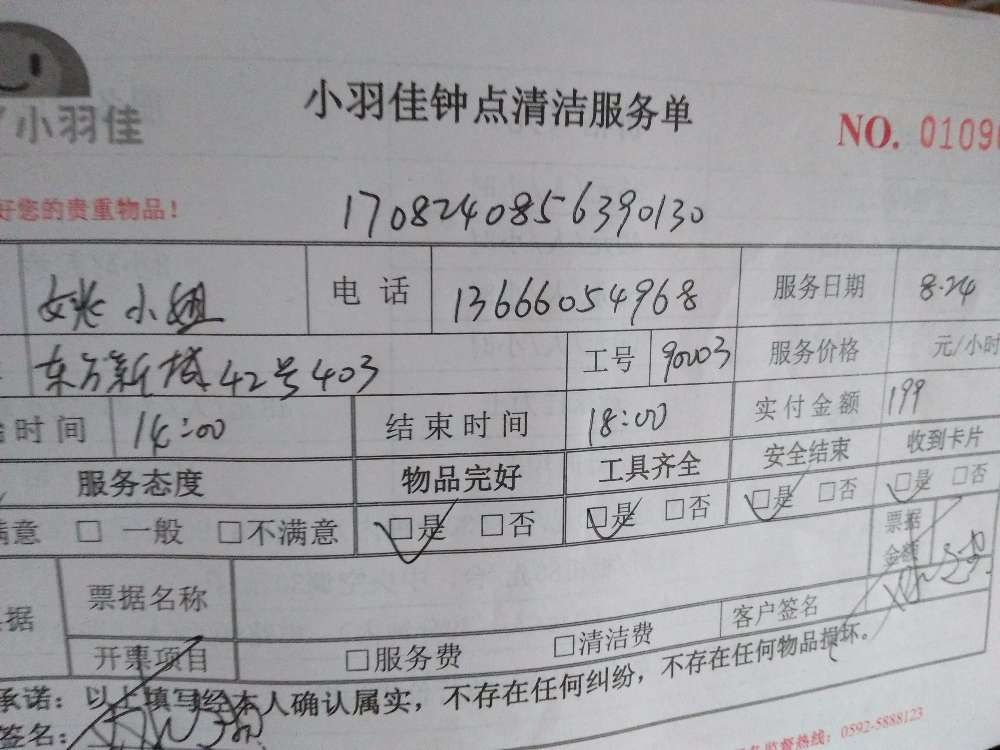 小羽佳钟点清洁服务单
小羽佳
NO. 0109
好您的贵重物品！
1708240856390130
姚小姐 电话 13666054968 服务日期 8.24
东方新城42号403 工号 90003 服务价格 元/小时
时间 14:00 结束时间 18:00 实付金额 199
服务态度 物品完好 工具齐全 安全结束 收到卡片
满意 □ 一般 □不满意 □是 □否 □是 □否 □是 □否 □是 □否
票据名称 票据金额
据 开票项目 □服务费 □清洁费 客户签名
承诺：以上填写经本人确认属实，不存在任何纠纷，不存在任何物品损坏。
签名：
监督热线：0592-5888123